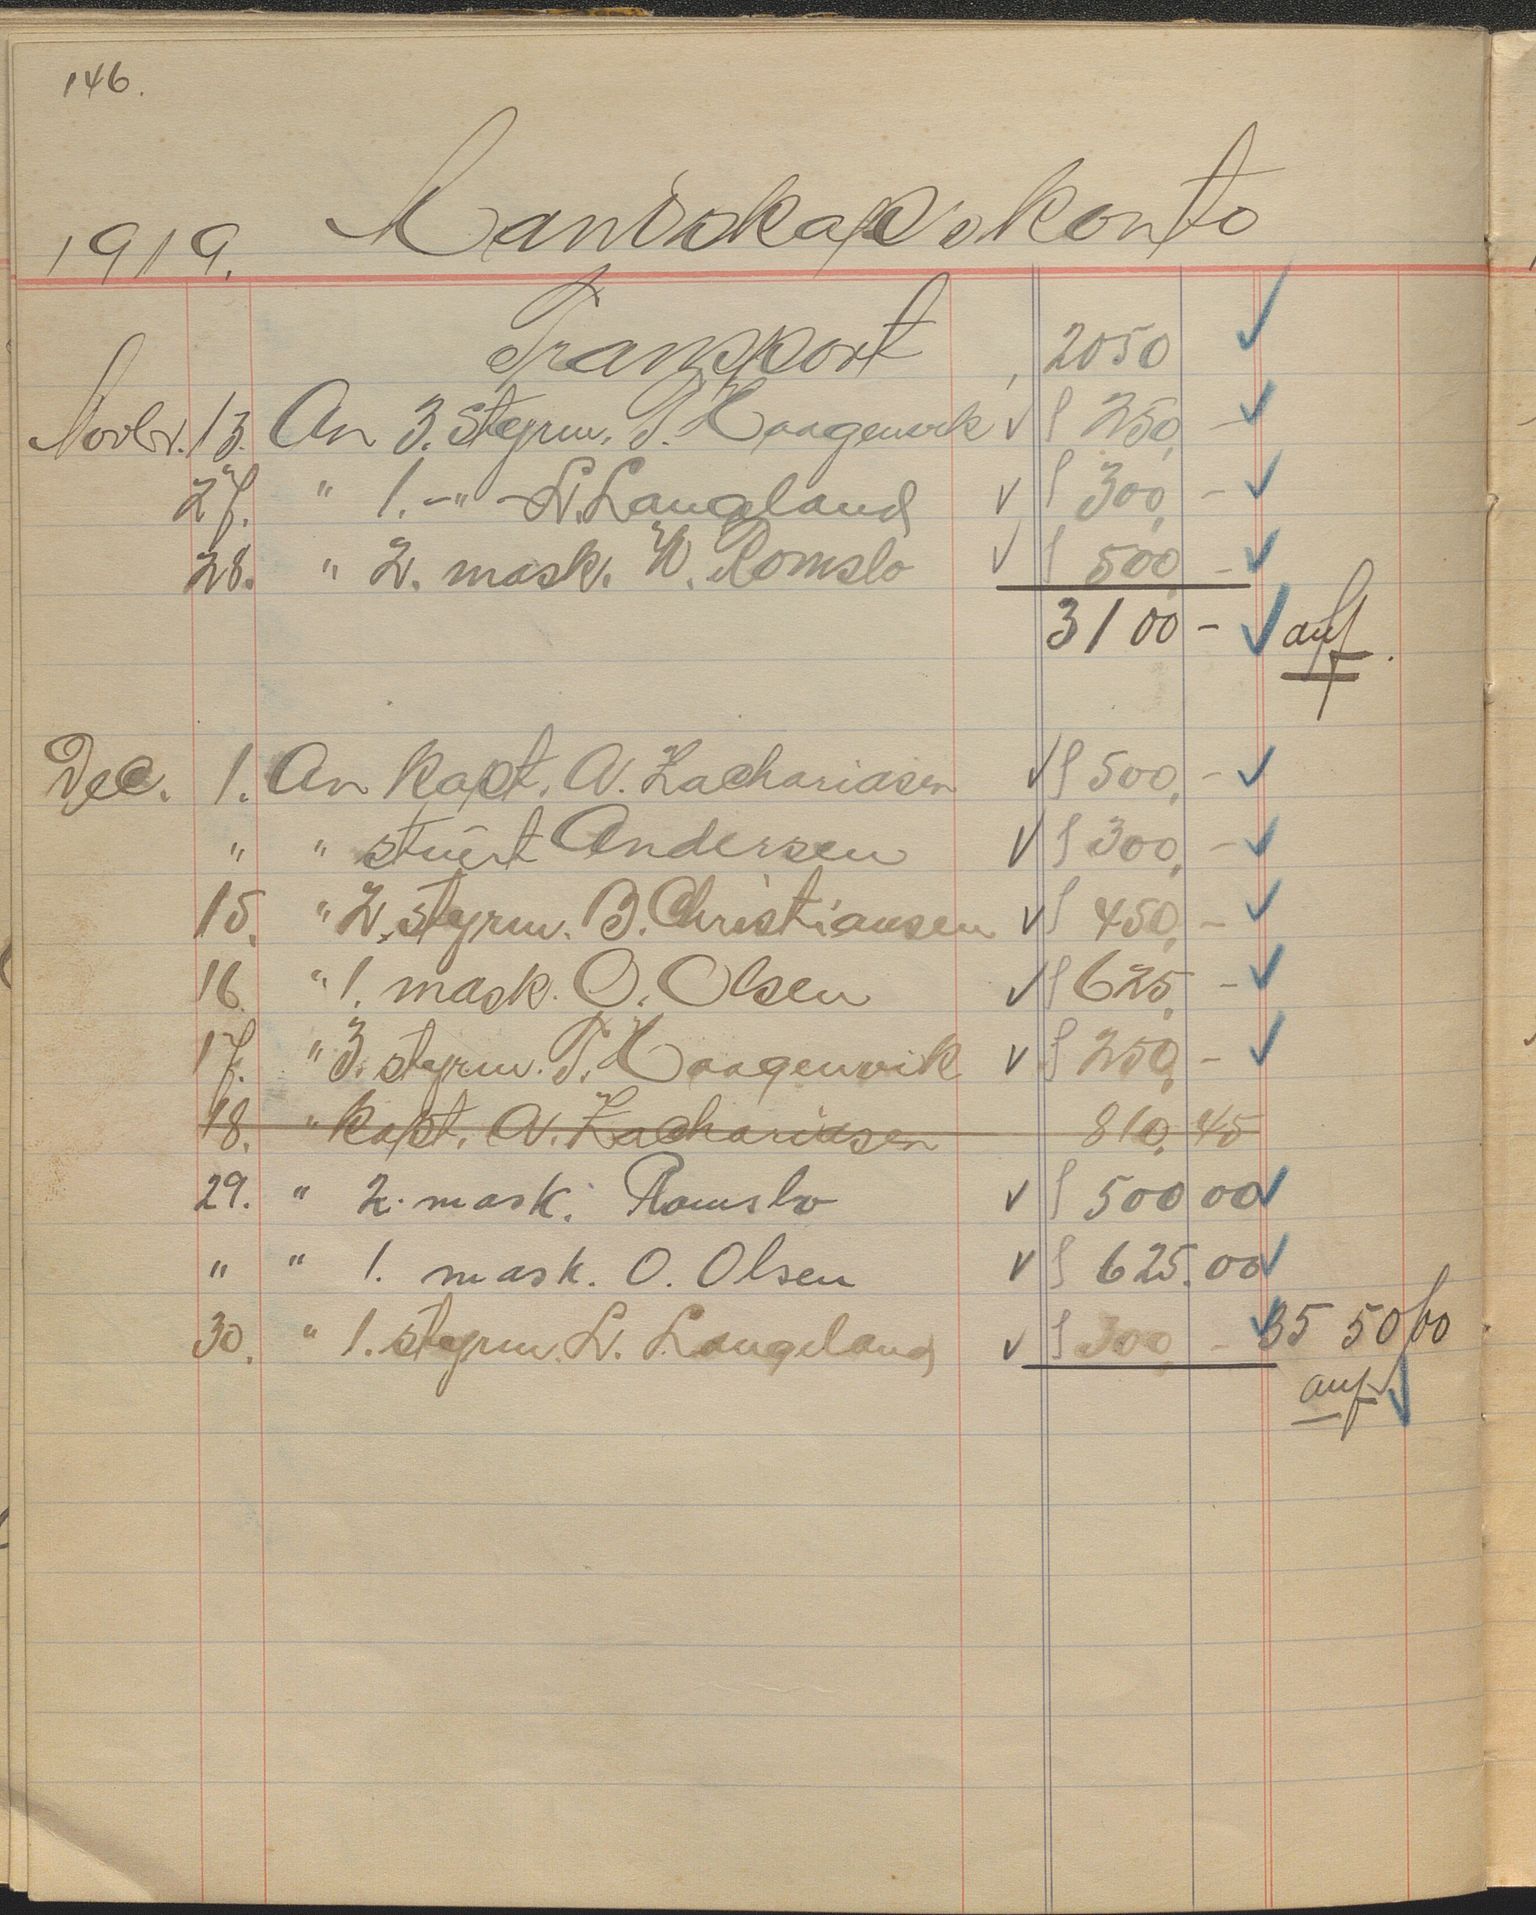 146.
1919. Mandskapskonto
Transport 2050
Novbr. 13. An 3. styrm. T. Haagenvik √ § 250, -
27. " 1. -"- L. Langeland √ § 300, -
28. " 2. mask. W. Romslo √ § 500, -
3100 -
Dec. 1. An kapt. A. Zachariasen √ § 500, -
" " stüert Andersen √ § 300, -
15. " 2. styrm. B. Christiansen √ § 450, -
16 " 1. mask. O. Olsen √ § 625, -
17. " 3. styrm. T. Haagenvik √ § 250, -
18. " kapt. A. Zachariasen 810, 45
29. " 2. mask. Romslo √ § 500 00
" " 1. mask. O. Olsen √ § 625.00
30. " 1. styrm. L. Langeland √ § 300 - 35 50 00